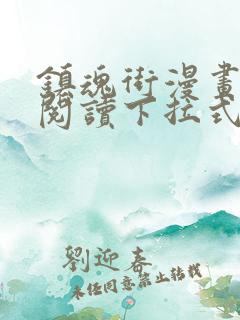 鎮魂街漫畫
閱讀下拉式
劉迎春
未經同意禁止轉載